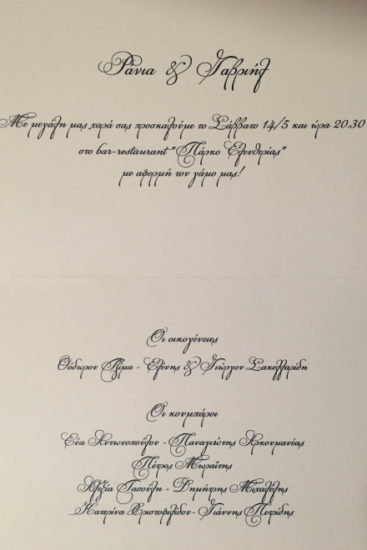 Ράνια & Γαβριήλ
Με μεγάλη μας χαρά σας προσκαλούμε το Σάββατο 14/5 και ώρα 20.30
στο bar-restaurant "Πάρκο Ελευθερίας"
με αφορμή τον γάμο μας!
Οι οικογένειες
Θόδωρου - Ελένης & Γιώργου Σακελλαρίδη
Οι κουμπάροι
Εύα Αντωνοπούλου - Παναγιώτης
Πέτρος Μωραΐτης
Αλεξία - Δημήτρης Μιχαλέλης
Κατερίνα Χριστοφιλίδου - Γιάννης Πετρίδης